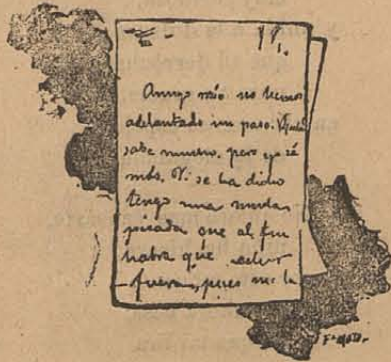 Amigo mío no hemos
adelantado un paso.
sabe mucho, pero yo sé
más. se ha dicho
tengo una muela
picada que al fin
habra que echar
fuera, pues me la